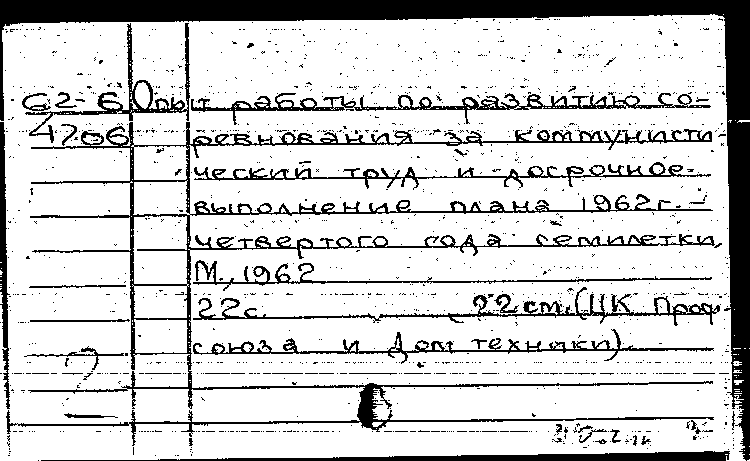 62-6 Опыт работы по развитию со-
4706 ревнования за коммунисти-
ческий труд и досрочное
выполнение плана 1962г. -
четвертого года семилетки.
М., 1962
22с. 22 см. (ЦК Проф-
союза и Дом техники)
2